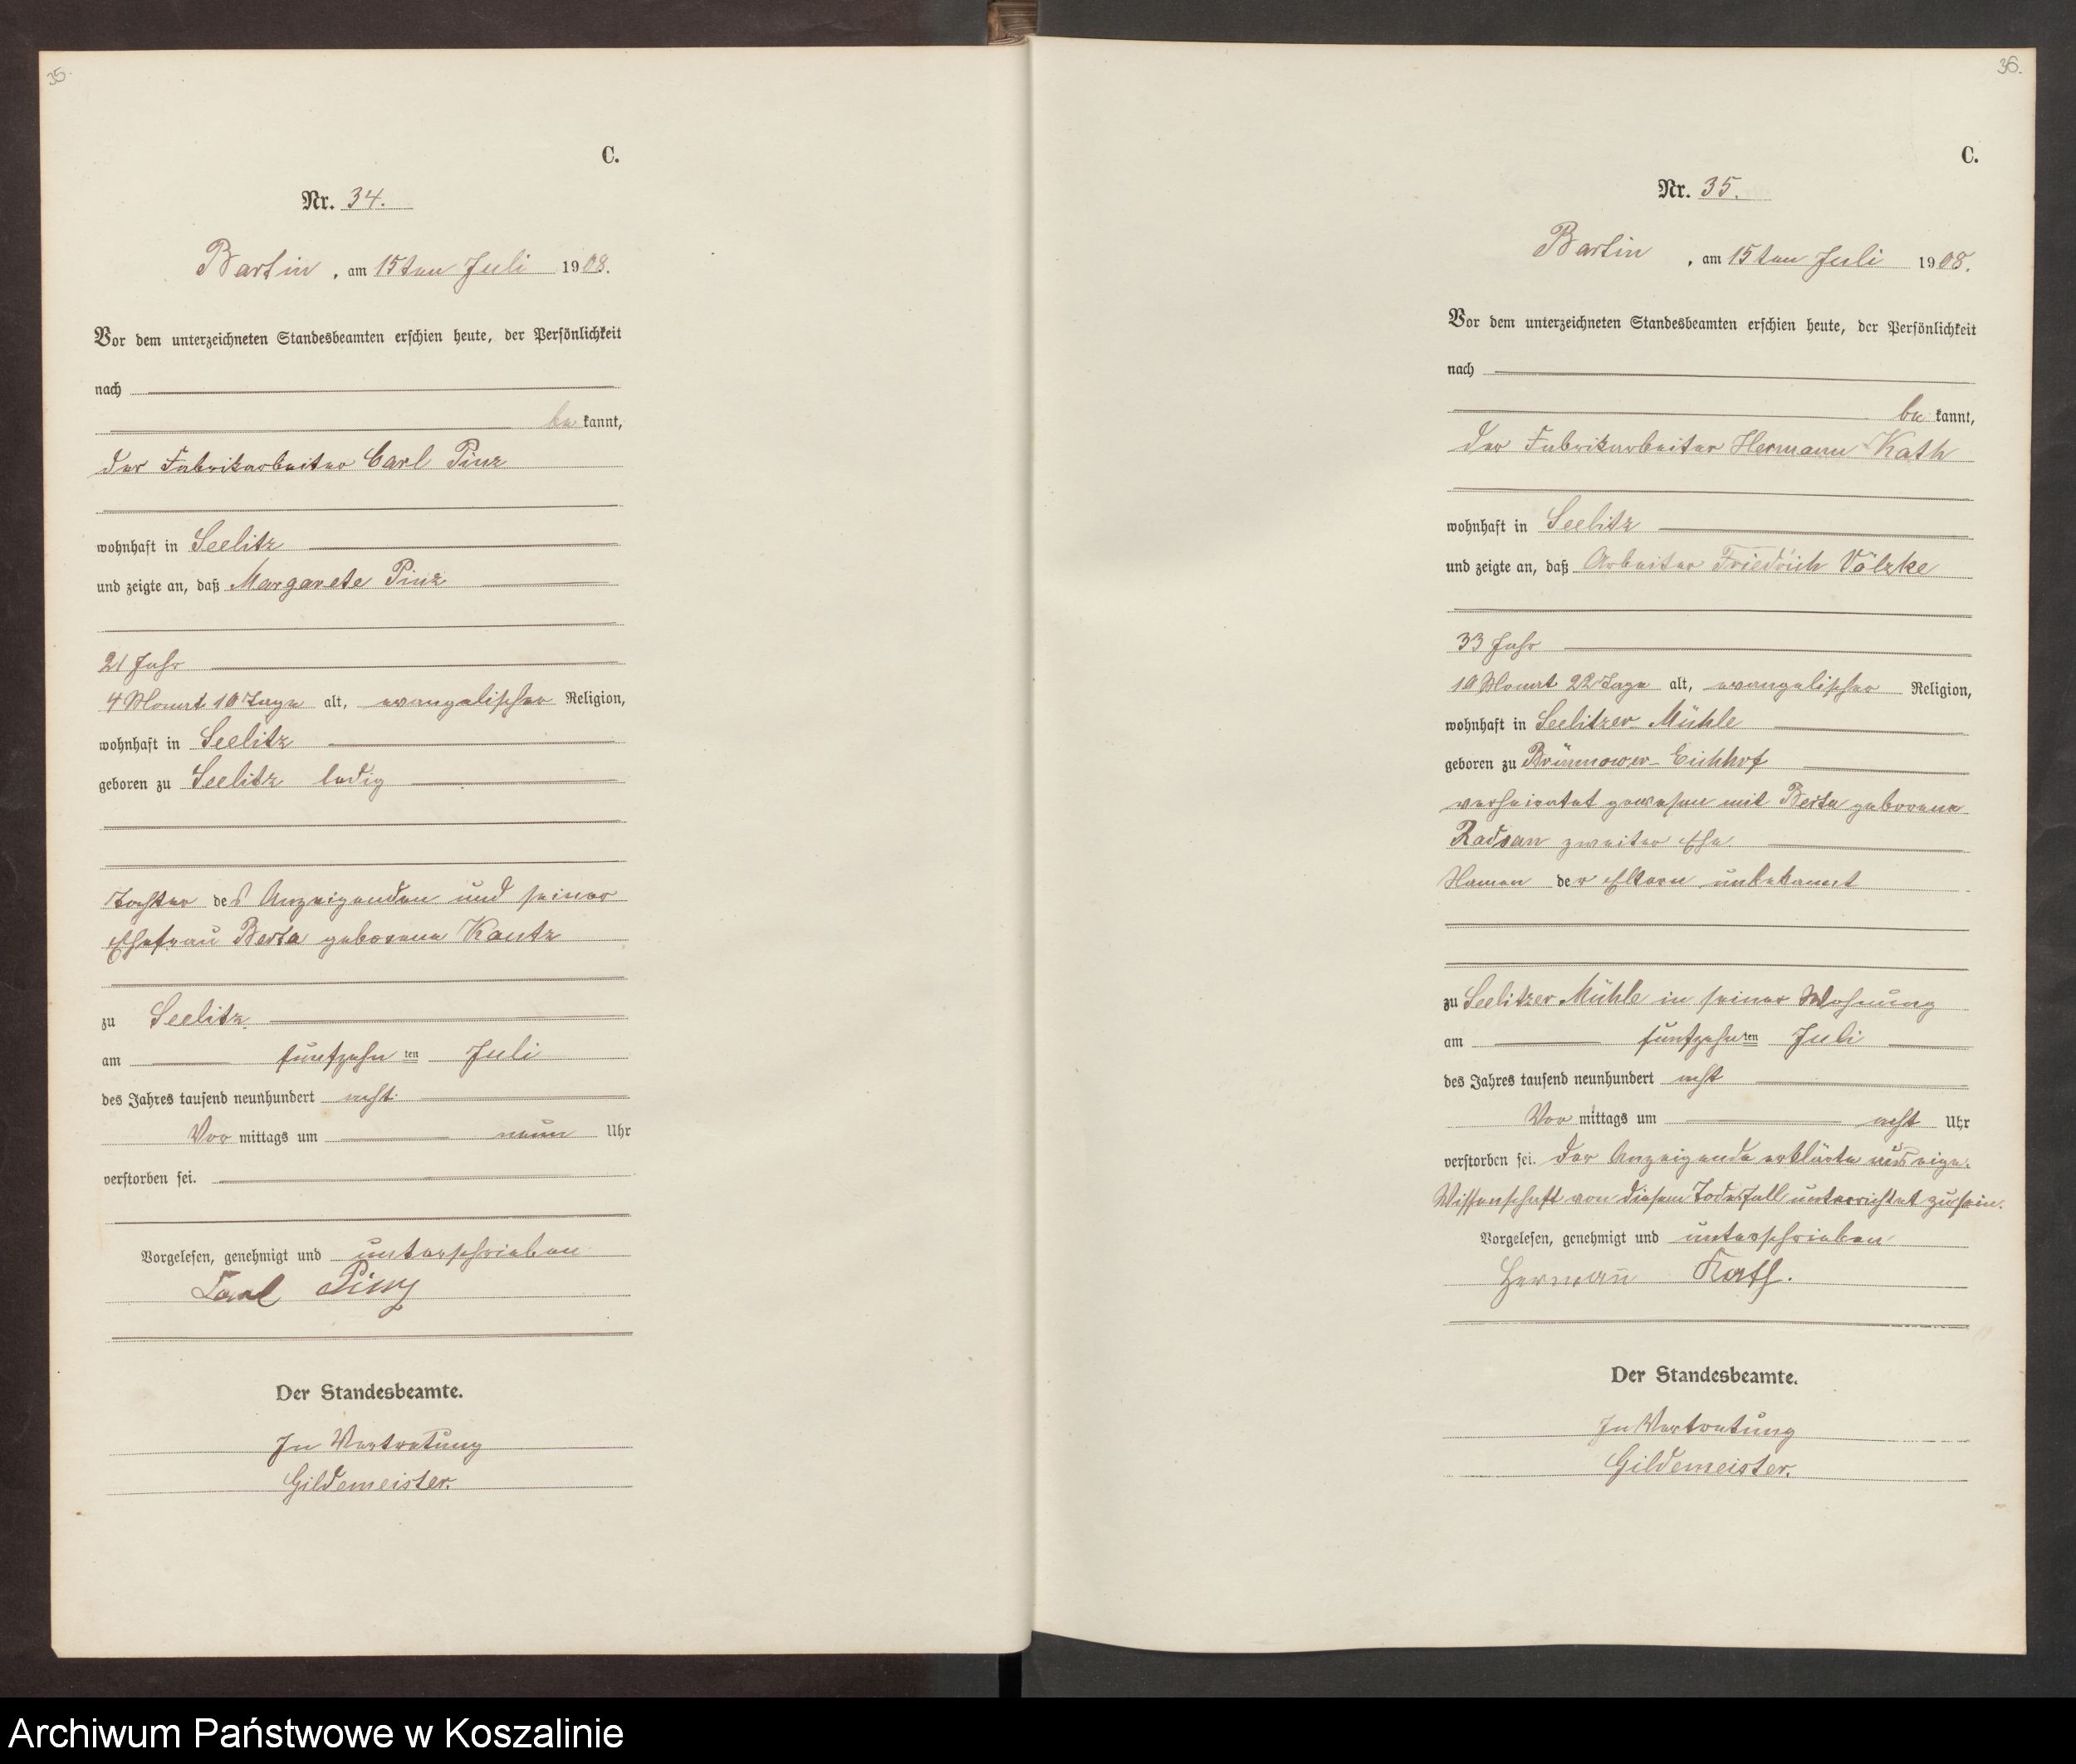 35.
C.
Nr. 34.
Bartin, am 15ten Juli 1908.
Vor dem unterzeichneten Standesbeamten erschien heute, der Persönlichkeit
nach
be kannt,
der Fabrikarbeiter Carl Pinz
wohnhaft in Seelitz
und zeigte an, daß Margarete Pinz
21 Jahr
4 Monat 10 Tage alt, evangelischer Religion,
wohnhaft in Seelitz
geboren zu Seelitz ledig
Tochter des Anzeigenden und seiner
Ehefrau Berta geborene Kautz
zu Seelitz
am fünfzehn ten Juli
des Jahres tausend neunhundert acht
Vor mittags um neun Uhr
verstorben sei.
Vorgelesen, genehmigt und unterschrieben
Carl Pinz
Der Standesbeamte.
In Vertretung
Gildemeister.
36.
C.
Nr. 35.
Bartin, am 15ten Juli 1908.
Vor dem unterzeichneten Standesbeamten erschien heute, der Persönlichkeit
nach
be kannt,
der Fabrikarbeiter Hermann Kath
wohnhaft in Seelitz
und zeigte an, daß Arbeiter Friedrich Völzke
33 Jahr
10 Monat 22 Tage alt, evangelischer Religion,
wohnhaft in Seelitzer Mühle
geboren zu Brünnower Eichhof
verheiratet gewesen mit Berta geborene
Radsan zweiter Ehe
Namen der Eltern unbekannt
zu Seelitzer Mühle in seiner Wohnung
am fünfzehn ten Juli
des Jahres tausend neunhundert acht
Vor mittags um acht Uhr
verstorben sei. Der Anzeigende erklärte aus eige.
Wissenschaft von diesem Todesfall unterrichtet zu sein.
Vorgelesen, genehmigt und unterschrieben
Hermann̄ Kath.
Der Standesbeamte.
In Vertretung
Gildemeister.
Archiwum Państwowe w Koszalinie